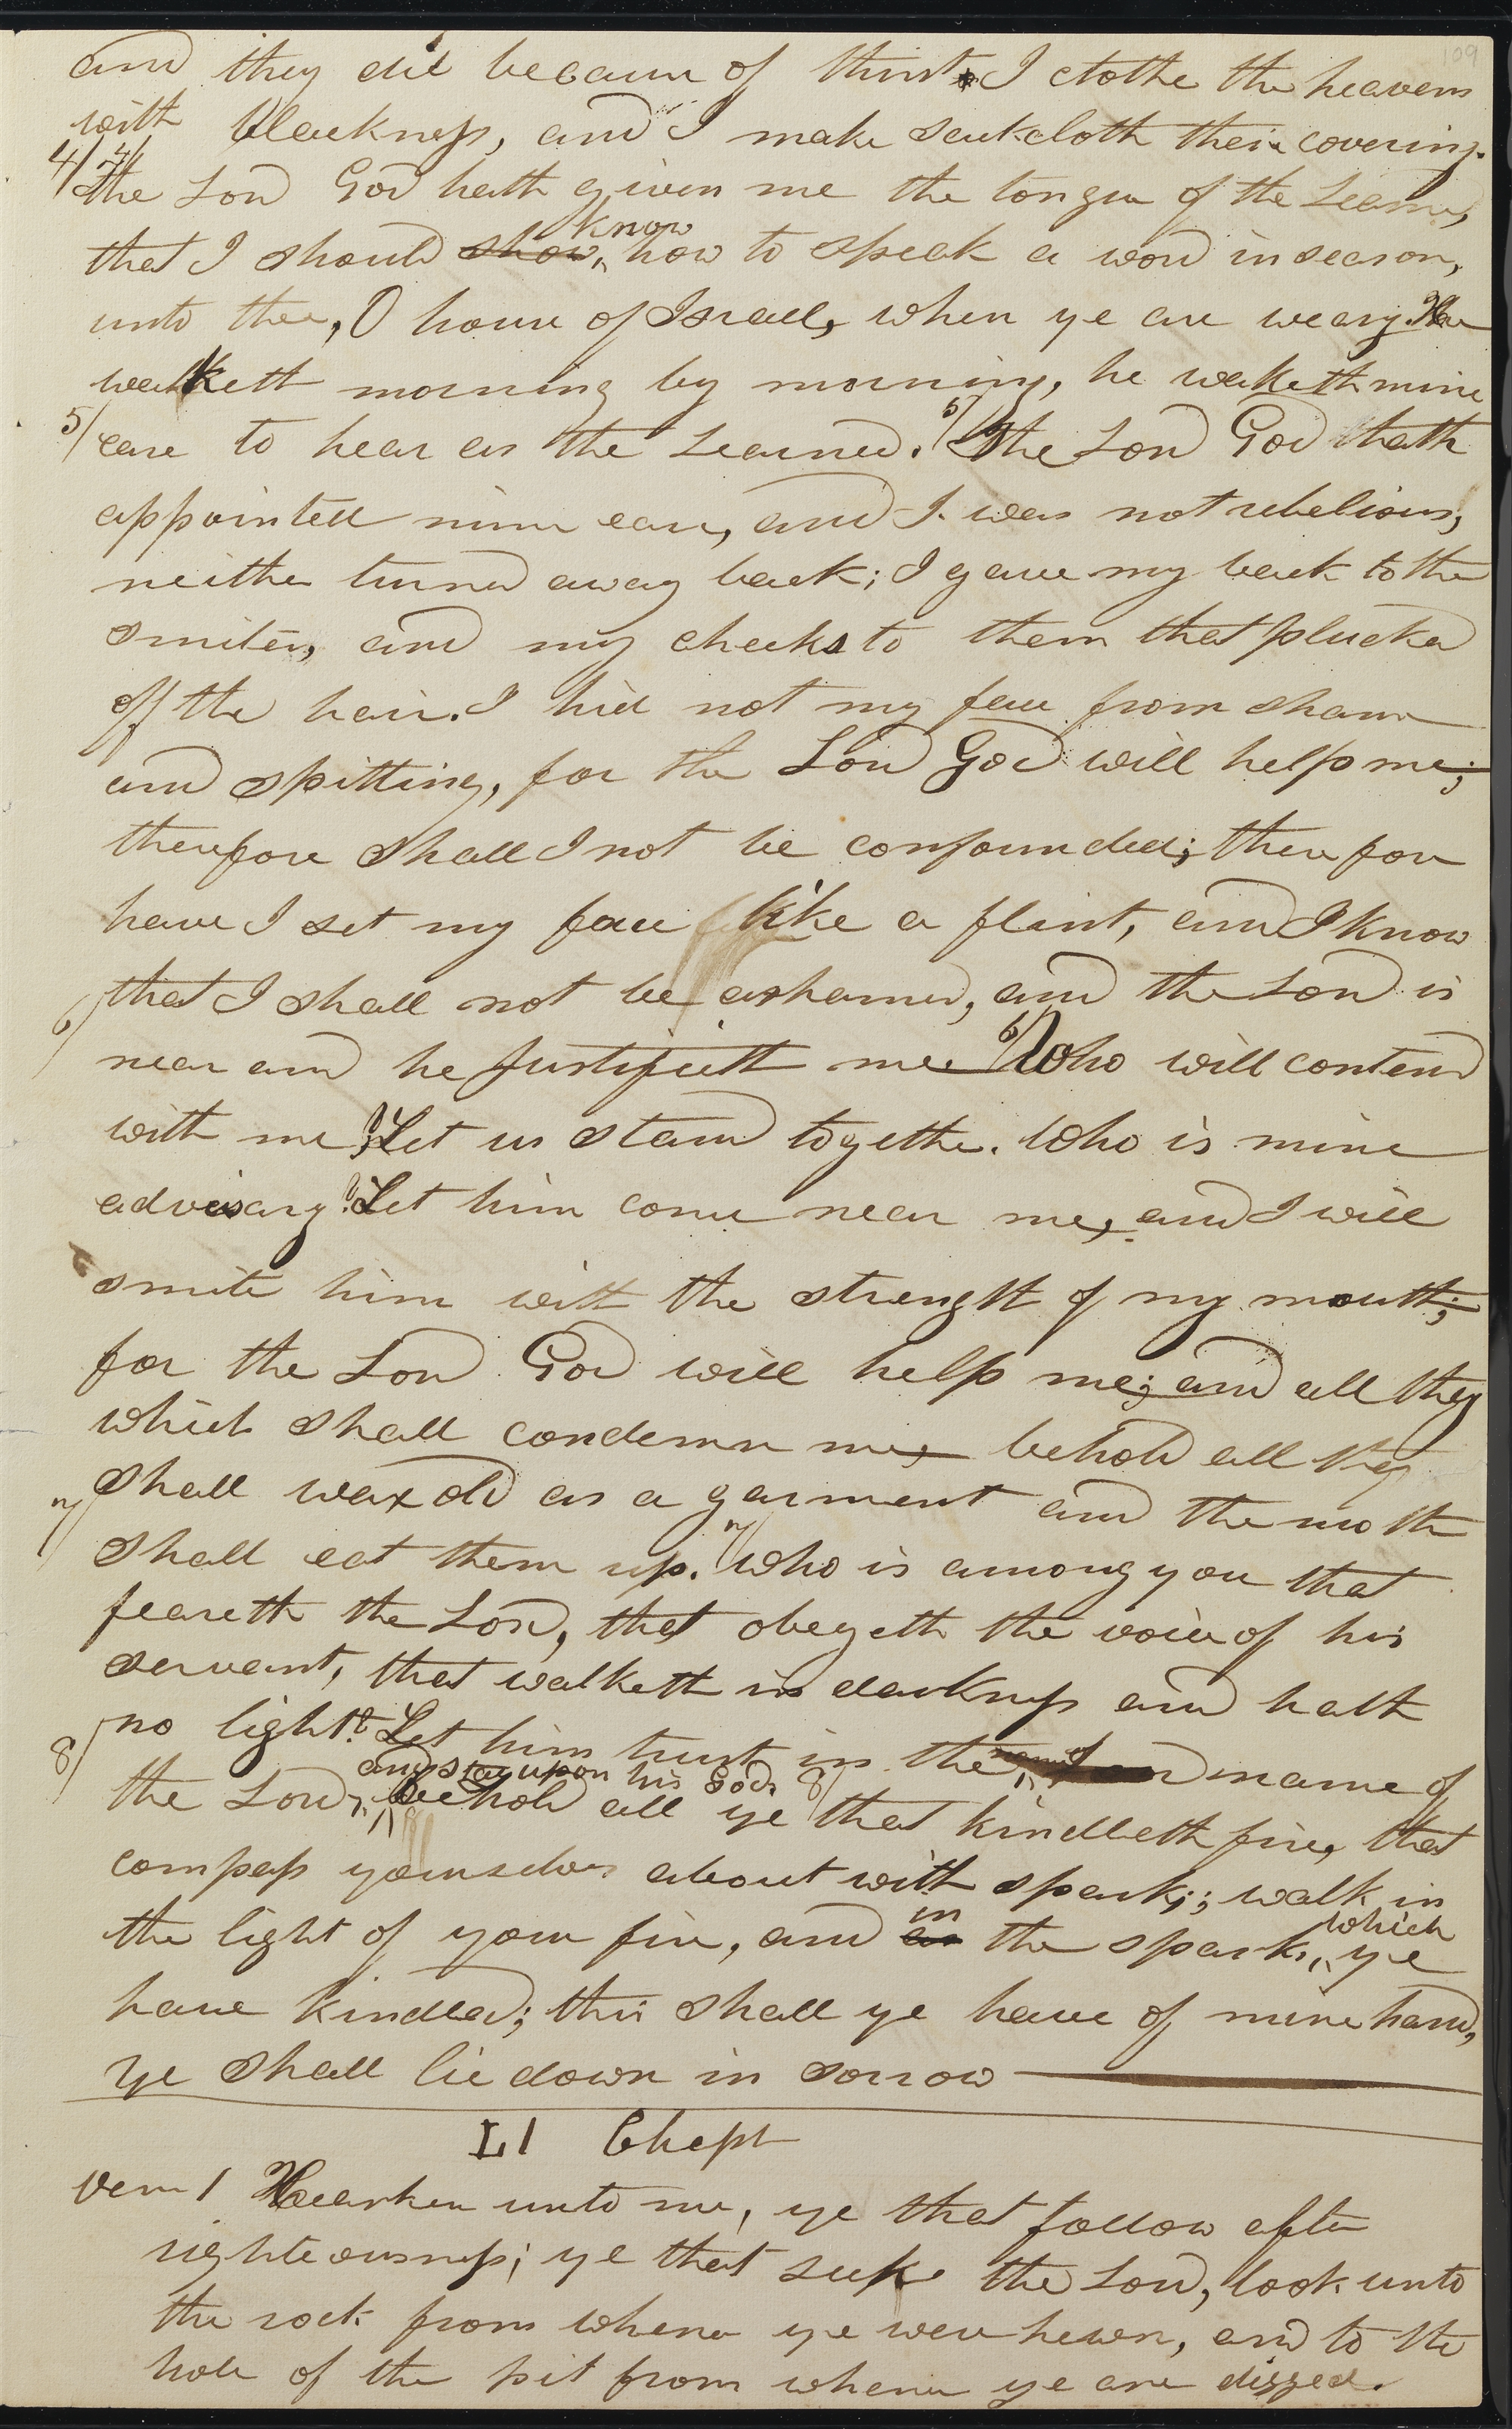 109
and they die because of thirst. I clothe the heavens
with blackness, and I make sackcloth their covering.
4/ 4/ The Lord God hath given me the tongue of the Learned,
that I should show know how to speak a word in season,
unto thee, O house of Israel, when ye are weary. He
waketh morning by morning, he waketh mine
5/ eare to hear as the Learned. 5/ The Lord God hath
appointed mine eare, and I was not rebelious,
neither turned away back; I gave my back to the
smiters, and my cheeks to them that plucked
off the hair. I hid not my face from shame
and spitting, for the Lord God will help me;
therefore shall I not be confounded; therefore
have I set my face like a flint, and I know
6/ that I shall not be ashamed, and the Lord is
near and he Justifieth me. 6/ Who will contend
with me? Let us stand together. Who is mine
advisary? Let him come near me, and I will
smite him with the strength of my mouth;
for the Lord God will help me; and all they
which shall condemn me, behold all they
7/ shall wax old as a garment and the moth
shall eat them up. 7/ Who is among you that
feareth the Lord, that obeyeth the voice of his
servant, that walketh in darkness and hath
no light? Let him trust in the Lord name of
8/ the Lord, and stay upon his God. 8/ behold all ye that kindleth fire, that
compass yourselves about with sparks; walk in
the light of your fire, and as in the sparks, which ye
have kindled; this shall ye have of mine hand,
ye shall lie down in sorrow
LI Chapt
Verse 1 Hearken unto me, ye that follow after
righteousness; ye that seek the Lord, look unto
the rock from whence ye were hewn, and to the
hole of the pit from whence ye are digged.